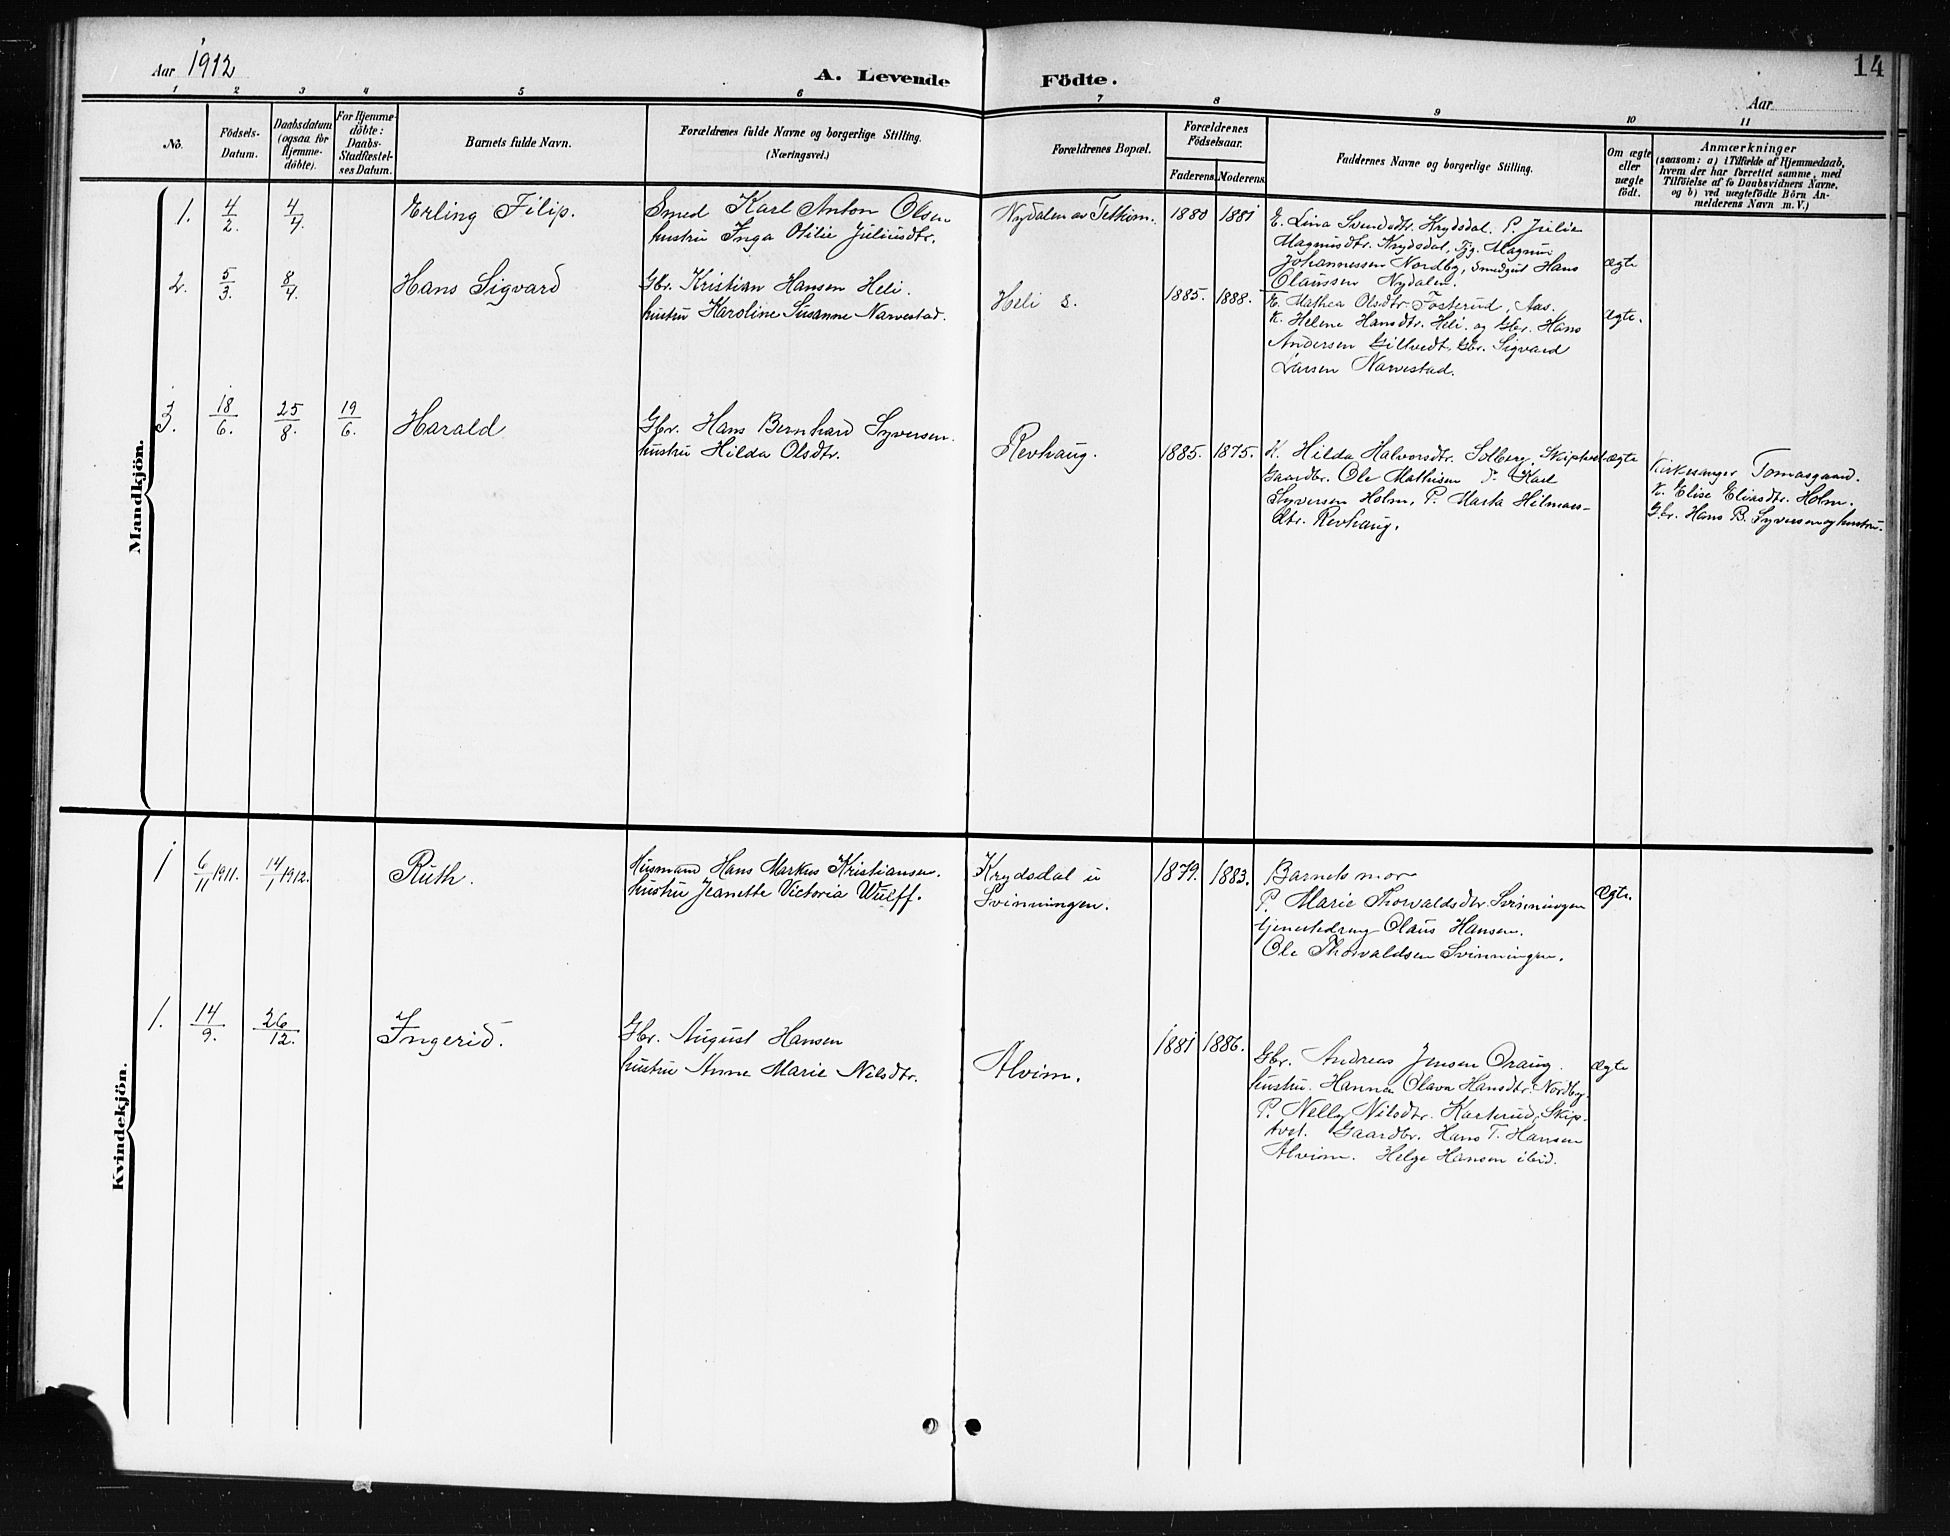 Aar 1912
A. Levende Födte.
14
Aar
1 2 3 4 5 6 7 8 9 10 11
No.
Födsels-
Datum.
Daabsdatum
(ogsaa for
Hjemme-
döbte).
For Hjemme-
döbte:
Daabs-
Stadfæstel-
ses Datum.
Barnets fulde Navn.
Forældrenes fulde Navne og borgerlige Stilling.
(Næringsvei.)
Forældrenes Bopæl.
Forældrenes
Födselsaar.
Faderens.
Moderens.
Faddernes Navne og borgerlige Stilling.
Om ægte
eller
uægte
födt.
Anmærkninger
(saasom: a) i Tilfælde af Hjemmedaab,
hvem der har forrettet samme, med
Tilföielse af to Daabsvidners Navne,
og b) ved uægtefödte Börn An-
melderens Navn m. V.)
Mandkjön.
1.
4/2.
4/4.
Erling Filip.
Smed Karl Anton Olsen
hustru Inga Otilie Juliusdtr.
Nydalen av Tetkim.
1880
1881
E. Lina Svendsdtr. Krydsdal. P. Julie
Magnusdtr. Krydsdal, Tjg. Magnus
Johannessen Nordby, smedgut Hans
Olaussen Nydalen.
ægte
2.
5/3.
8/4.
Hans Sigvard
Gbr. Kristian Hansen Heli.
hustru Karoline Susanne Narvestad.
Heli s.
1885.
1888.
E. Mathea Olsdtr. Fosterud, Aas.
K. Helene Hansdtr. Heli. og Gbr. Hans
Andersen Gillvedt, Gbr. Sigvard
Larsen Narvestad.
ægte.
3.
18/6.
25/8.
19/6.
Harald
Gbr. Hans Bernhard Syversen.
hustru Hilda Olsdtr.
Revhaug.
1885.
1875.
K. Hilda Halvorsdtr. Solberg, Skiptvet
Gaardbr. Ole Mathisen Karl
Syversen Holm, P. Marta Hilmars-
dtr. Revhaug.
ægte
Kirkesanger Tomasgaard.
K. Elise Eliasdtr. Holm.
Gbr. Hans B. Syversen og hustru.
Kvindekjön.
1
6/11 1911.
14/1 1912.
Ruth.
Husmand Hans Markus Kristiansen.
hustru Jeanette Victoria Wulff.
Krydsdal u
Svinningen.
1879.
1883.
Barnets mor
P. Marie Thorvaldsdtr. Svinningen
tjenestedreng Olaus Hansen.
Ole Thorvaldsen Svinningen.
Ægte.
1.
14/9.
26/12.
Ingerid.
Gbr. August Hansen
hustru Anne Marie Nilsdtr.
Alvim.
1881
1886.
Gbr. Andreas Jensen Oraug.
hustru. Hanna Olava Hansdtr. Nordby.
P. Nelly Nilsdtr. Karterud, Skip-
tvet. Gaardbr. Hans T. Hansen
Alvim. Helge Hansen ibid.
ægte